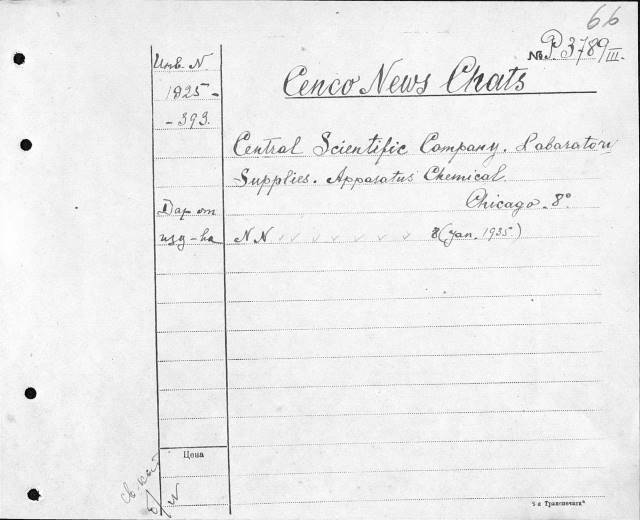 66
№ P 3789 III.
Cenco News Chats
Инв. N
1825-
-393.
Central Scientific Company. Labaratory
Supplies. Apparatus Chemical.
Chicago. 8°
Дар от
изд-ва
NN 8 (Jan. 1935.)
Цена